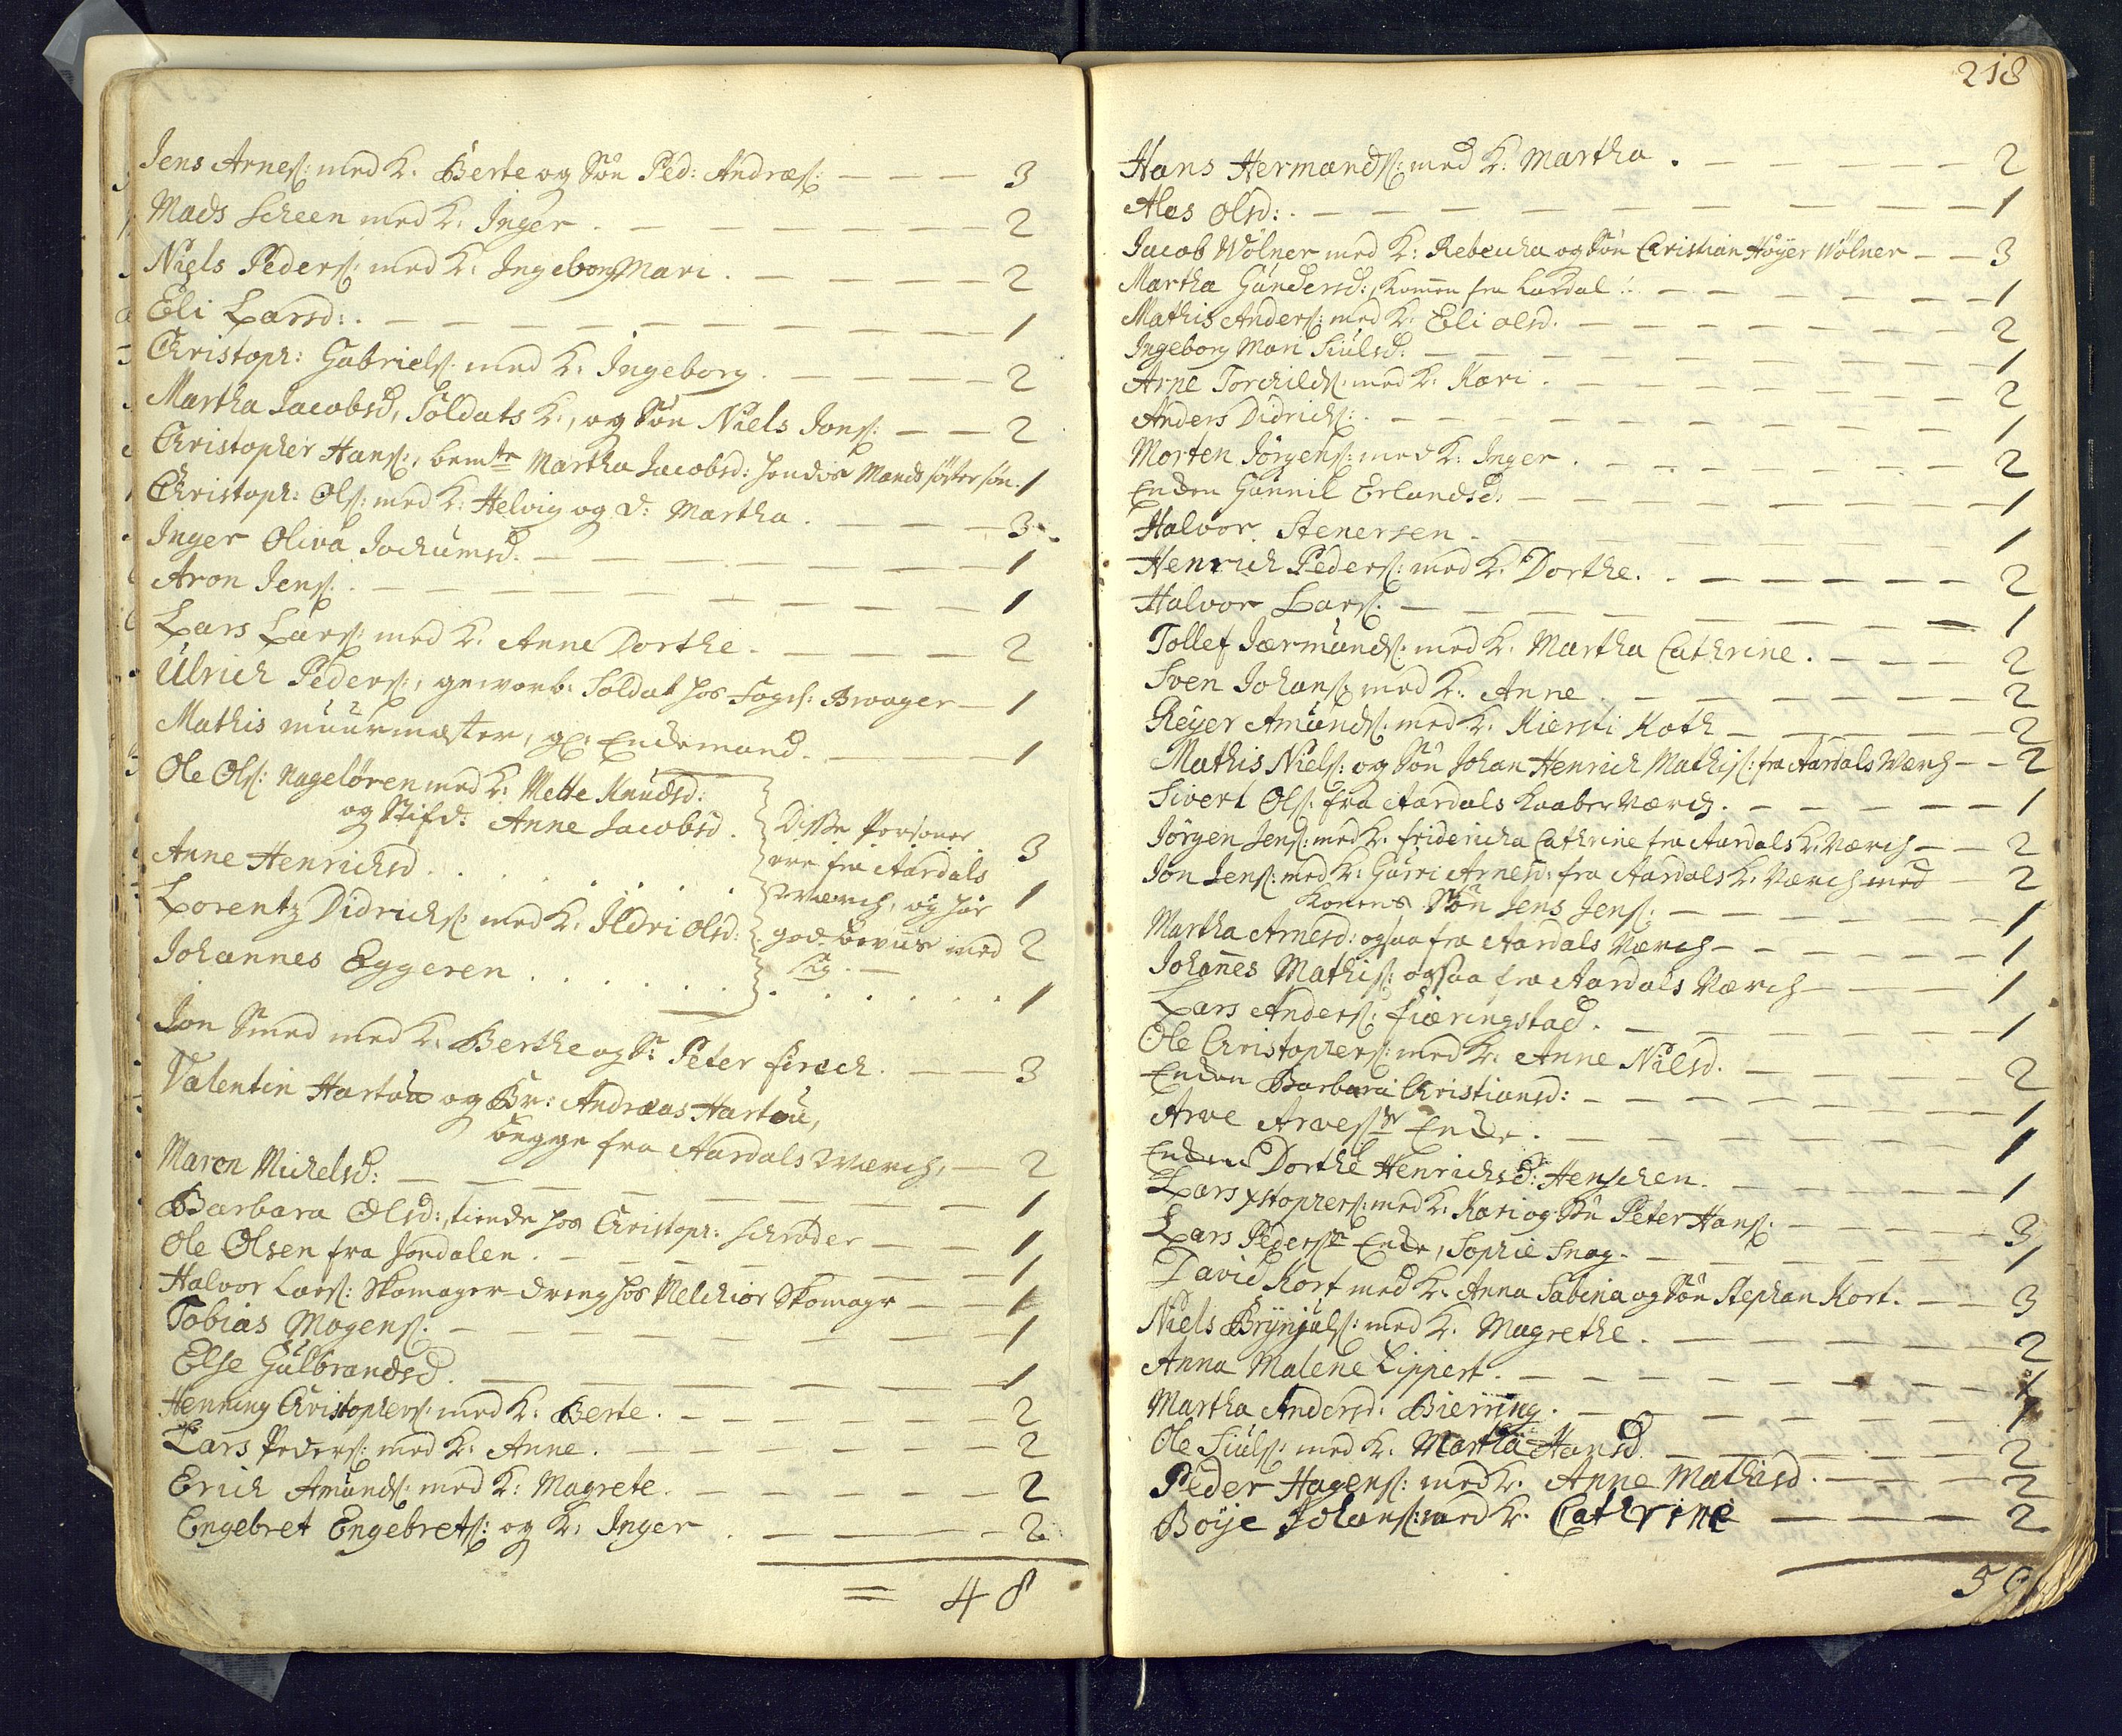 Jens Arnes: med K. Berte og Søn Ped: Andræs: — — — 3
Mads Scheen med K. Inger . — — — — — — 2
Niels Peders: med K. Ingeborg Mari . — — — — — 2
Eli Larsd: . — — — — — — — — — 1
Christoph: Gabriels. med K. Ingeborg . — — — — 2
Martha Jacobsd, Soldats K., og Søn Niels Jons: — — 2
Christopher Hans:, bemte Martha Jacobsd: hendes Mands søster søn. 1
Christoph: Ols: med K: Helvig og D: Martha . — — — — 3
Inger Oliva Jochumsd. — — — — — — — 1
Aron Jens. . — — — — — — — — — 1
Lars Lars: med K. Anne Dorthe . — — — — 2
Ulrich Peders:, geworb: Soldat hos Capit: Brager — 1
Mathis Muurmæster, gl: Enckemand. — — — — 1
Ole Ols: Nageløren med K: Mette Knudsd:
og Stifd: Anne Jacobsd. 3
Anne Henrichsd . . . . . . . 1
Lorentz Didrichs: med K: Ildri Olsd: 2
Johannes Eggeren . . . . . . . . . . . 1
Disse Personer
ere fra Aardals
Værch, og har
god beviis med
sig. —
Jon Smed med K. Berthe og S: Peter Firsch. — — 3
Valentin Hartou og Br: Andreas Hartou,
begge fra Aardals Værch, — 2
Maren Michelsd: — — — — — — 1
Barbara Olsd:, tiende hos Christoph: Schrøder — — 1
Ole Olsen fra Jordalen. — — — — — — 1
Halvor Lars: Skomager-dreng hos Melchior Skomagr — — 1
Tobias Mogens. — — — — — — — 1
Else Gulbrandsd. — — — — — — — 1
Henning Christophers: med K. Berte. — — — — — 2
Lars Peders: med K. Anne . — — — — — 2
Erich Amunds. med K: Magrete. — — — — — 2
Engebret Engebrets: og K. Inger . — — — — 2
= 48
218
Hans Hermands: med K: Martha . — — — — — 2
Ales Olsd: . — — — — — — — — 1
Jacob Wølner med K: Rebecha og Søn Christian Høyer Wølner — — 3
Martha Gundersd:, kommen fra Lardal . — — — — — — 1
Mathis Anders: med K. Eli Olsd. — — — — — — 2
Ingeborg Mari Siulsd. — — — — — — — 1
Arne Torchilds: med K. Kari . — — — — — — 2
Anders Didrichs: . — — — — — — — 1
Morten Jørgens: med K: Inger . — — — — — — 2
Encken Gunnil Erlandsd: — — — — — — — 1
Halvor Stenersen . — — — — — — 1
Henrich Peders: med K. Dorthe. — — — — — — 2
Halvor Lars. — — — — — — — 1
Tollef Iærmunds. med K. Martha Cathrine . — — — — 2
Sven Johans: med K. Anne . — — — — — — 2
Reyer Amunds. med K. Kiersti Koth — — — — — 2
Mathis Niels: og Søn Johan Henrich Mathis: fra Aardals Værch — — 2
Sivert Ols: fra Aardals Kaaber Værch. — — — — — 1
Jørgen Jens: med K. Fridericha Cathrine fra Aardals K. Værch — — 2
Jon Jens: med K. Gurri Arnesd: fra Aardals K. Værch med — 2
Konens Søn Jens Jens: — — — — — 1
Martha Arnesd: ogsaa fra Aardals Værch — — — — — 1
Johanes Mathis: ogsaa fra Aardals Værch — — — — 1
Lars Anders: Fiæringstad. — — — — — — 1
Ole Christophers: med K. Anne Nilsd. — — — — 2
Encken Barbara Christiansd: — — — — — — 1
Arve Arves: Encke. — — — — — — — 1
Encken Dorthe Henrichsd: Henschen. — — — — — 1
Lars Xstophers: med K. Kari og Søn Peter Hans: — — — — 3
Lars Peders: Encke, Sophie Snog. — — — — — — 1
David Kort med K. Anna Sabina og Søn Stephan Kort. — — 3
Niels Brynjuls: med K. Magrethe . — — — — — 2
Anna Malene Lippert. — — — — — — — 1
Martha Andersd: Bierring . — — — — — — 1
Ole Siuls: med K. Martha Hansd. — — — — — 2
Peder Hagens: med K. Anne Mathisd. — — — — 2
Boye Johans: med K. Cathrine — — — — 2